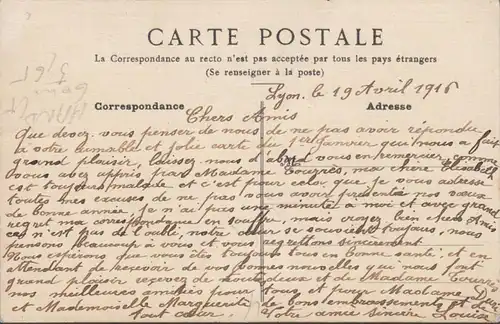 CARTE POSTALE
La Correspondance au recto n'est pas acceptée par tous les pays étrangers
(Se renseigner à la poste)
Lyon, le 19 Avril 1916
Correspondance Adresse
Chers Amis
Que devez vous penser de nous de ne pas avoir répondu
à votre aimable et jolie carte du 1er Janvier qui nous a fait
grand plaisir, laissez nous d'abord vous en remercier, comme
vous avez appris par Madame Tourrès, ma chère Elisabeth
est toujours malade et c'est pour cela que je vous adresse
toutes mes excuses de ne pas vous avoir présenté nos vœux
de bonne année. Je n'ai pas une minute à moi et avec grand
regret ma correspondance en souffre, mais croyez bien chers Amis
ce n'est pas de l'oubli, notre cœur se souvient toujours, nous
pensons beaucoup à vous et vous regrettons sincèrement.
Nous espérons que vous êtes toujours tous en bonne santé et en
attendant de recevoir de vos bonnes nouvelles qui nous font
grand plaisir recevez de nous deux et de Madame Tourrès
nos meilleures amitiés pour tous et pour Madame
et Mademoiselle Marguerite de bons embrassements de
tout cœur. Votre amie sincère Louise